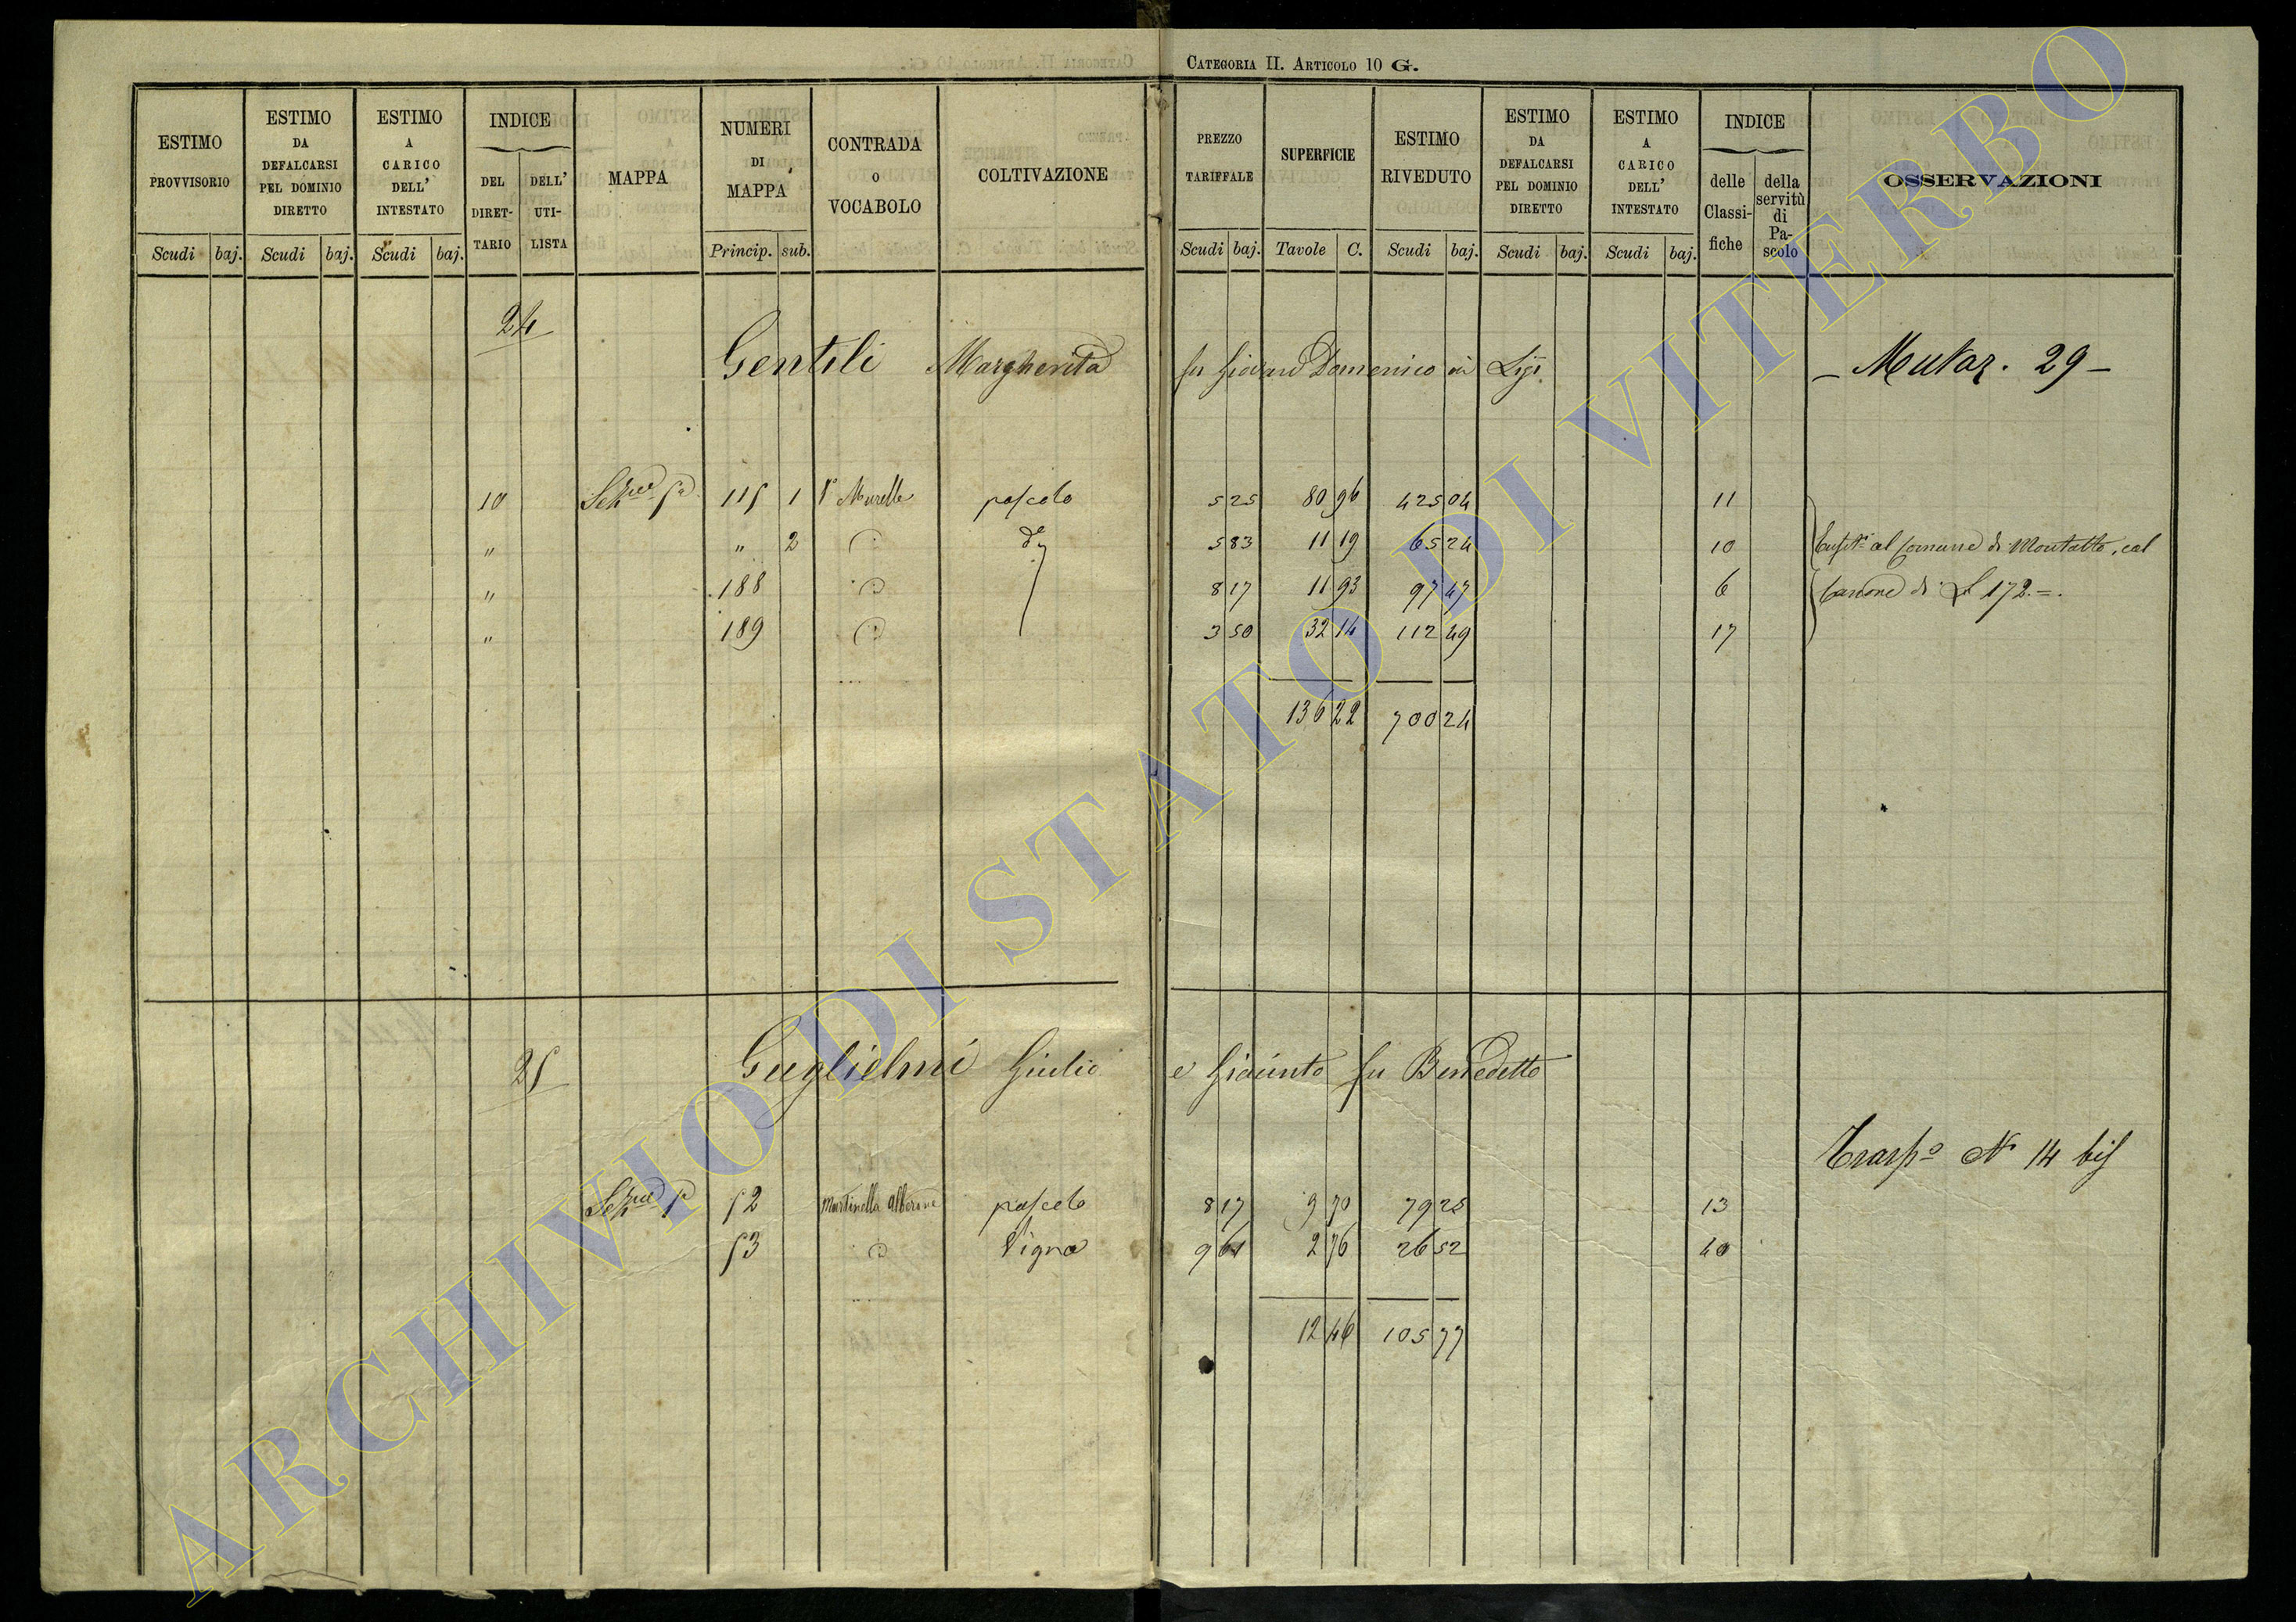 CATEGORIA II. ARTICOLO 10 G.
ESTIMO PROVVISORIO Scudi baj.
ESTIMO DA DEFALCARSI PEL DOMINIO DIRETTO Scudi baj.
ESTIMO A CARICO DELL' INTESTATO Scudi baj.
INDICE DEL DIRET-TARIO DELL' UTI-LISTA
MAPPA
NUMERI DI MAPPA Princip. sub.
CONTRADA O VOCABOLO
COLTIVAZIONE
PREZZO TARIFFALE Scudi baj.
SUPERFICIE Tavole C.
ESTIMO RIVEDUTO Scudi baj.
ESTIMO DA DEFALCARSI PEL DOMINIO DIRETTO Scudi baj.
ESTIMO A CARICO DELL' INTESTATO Scudi baj.
INDICE delle Classi-fiche della servitù di Pa-scolo
OSSERVAZIONI
24
Gentili Margherita fu Giovan Domenico in
— Mutaz. 29 —
10 115 1 Murelle pascolo 5 25 80 96 425 04 11
" " 2 do 5 83 11 19 65 24 10 al Comune di Montalto, col
" 188 8 17 11 93 97 47 6 Canone di 172.=.
" 189 3 50 32 14 112 49 17
136 22 700 24
25
Guglielmi Giulio e Giacinto fu Benedetto
Trasp.o N 14 bis
52 Martinella Alberone pascolo 8 17 9 70 79 25 13
53 Vigna 9 61 2 76 26 52 40
12 46 105 77
ARCHIVIO DI STATO DI VITERBO